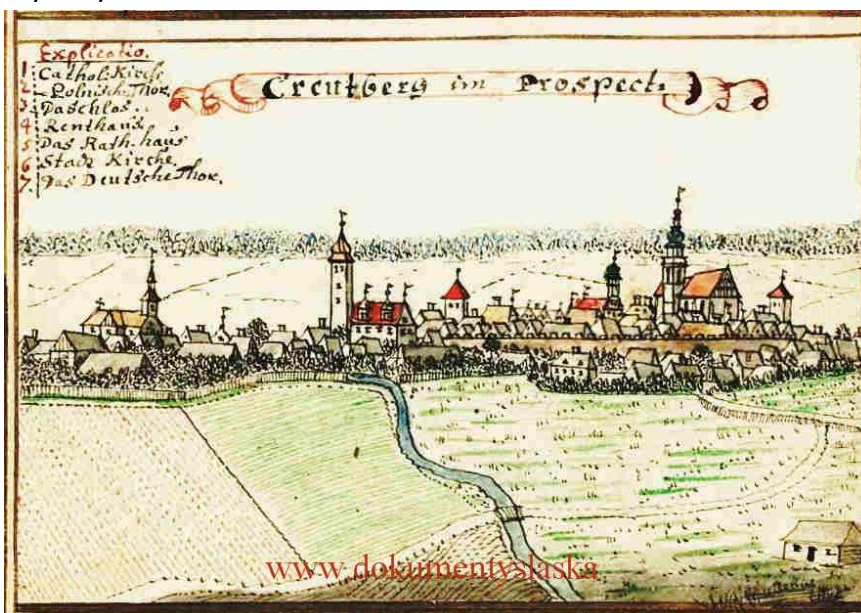 Explicatio.
1. Cathol: Kirche
2. Polnisch. Thor,
3. Daschlos.
4. Renthaus.
5. Das Rath. haus
6. Stadt Kirche.
7. Das Deutsche Thor.
Creutberg im Prospect.
www.dokumentyslaska